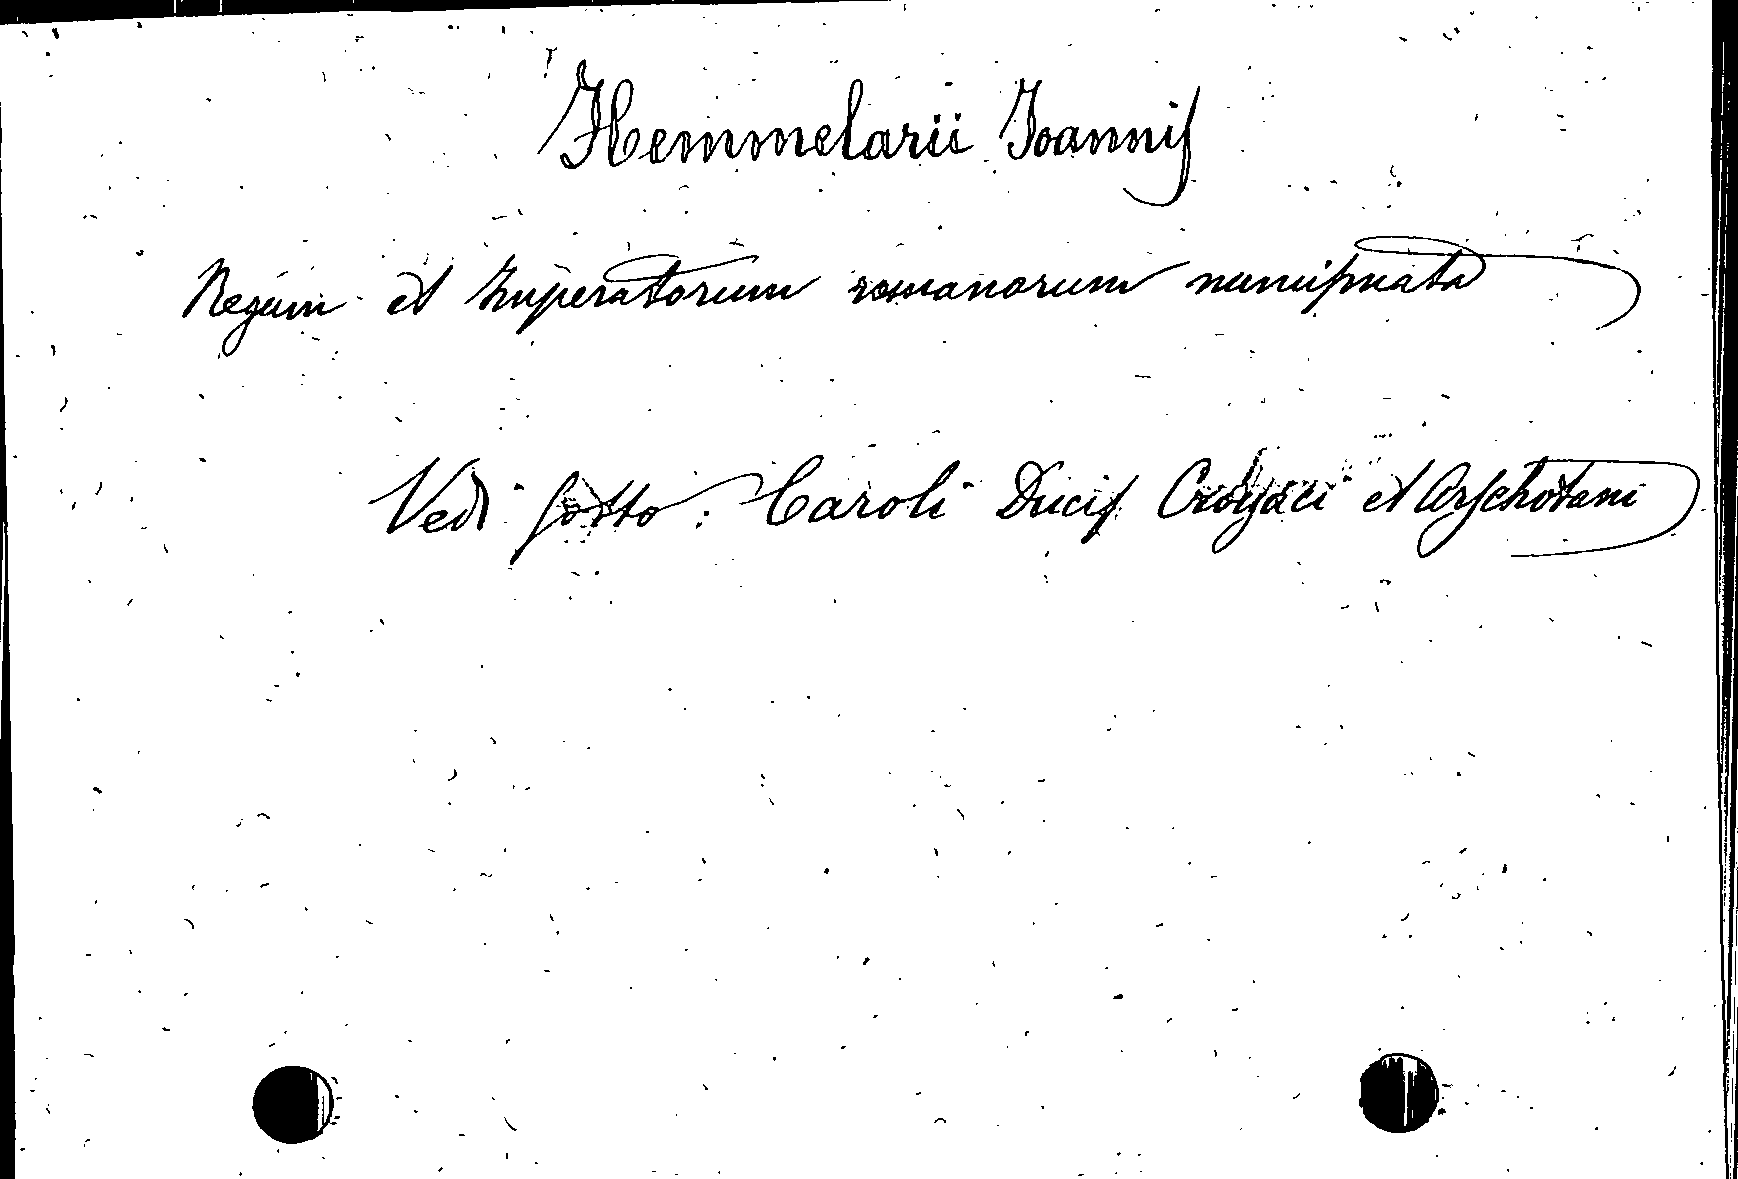 Hemmelarii Joannis
Regum et Imperatorum romanorum numismata
Vedi sotto: Caroli Ducis Croÿaci et Arschotani